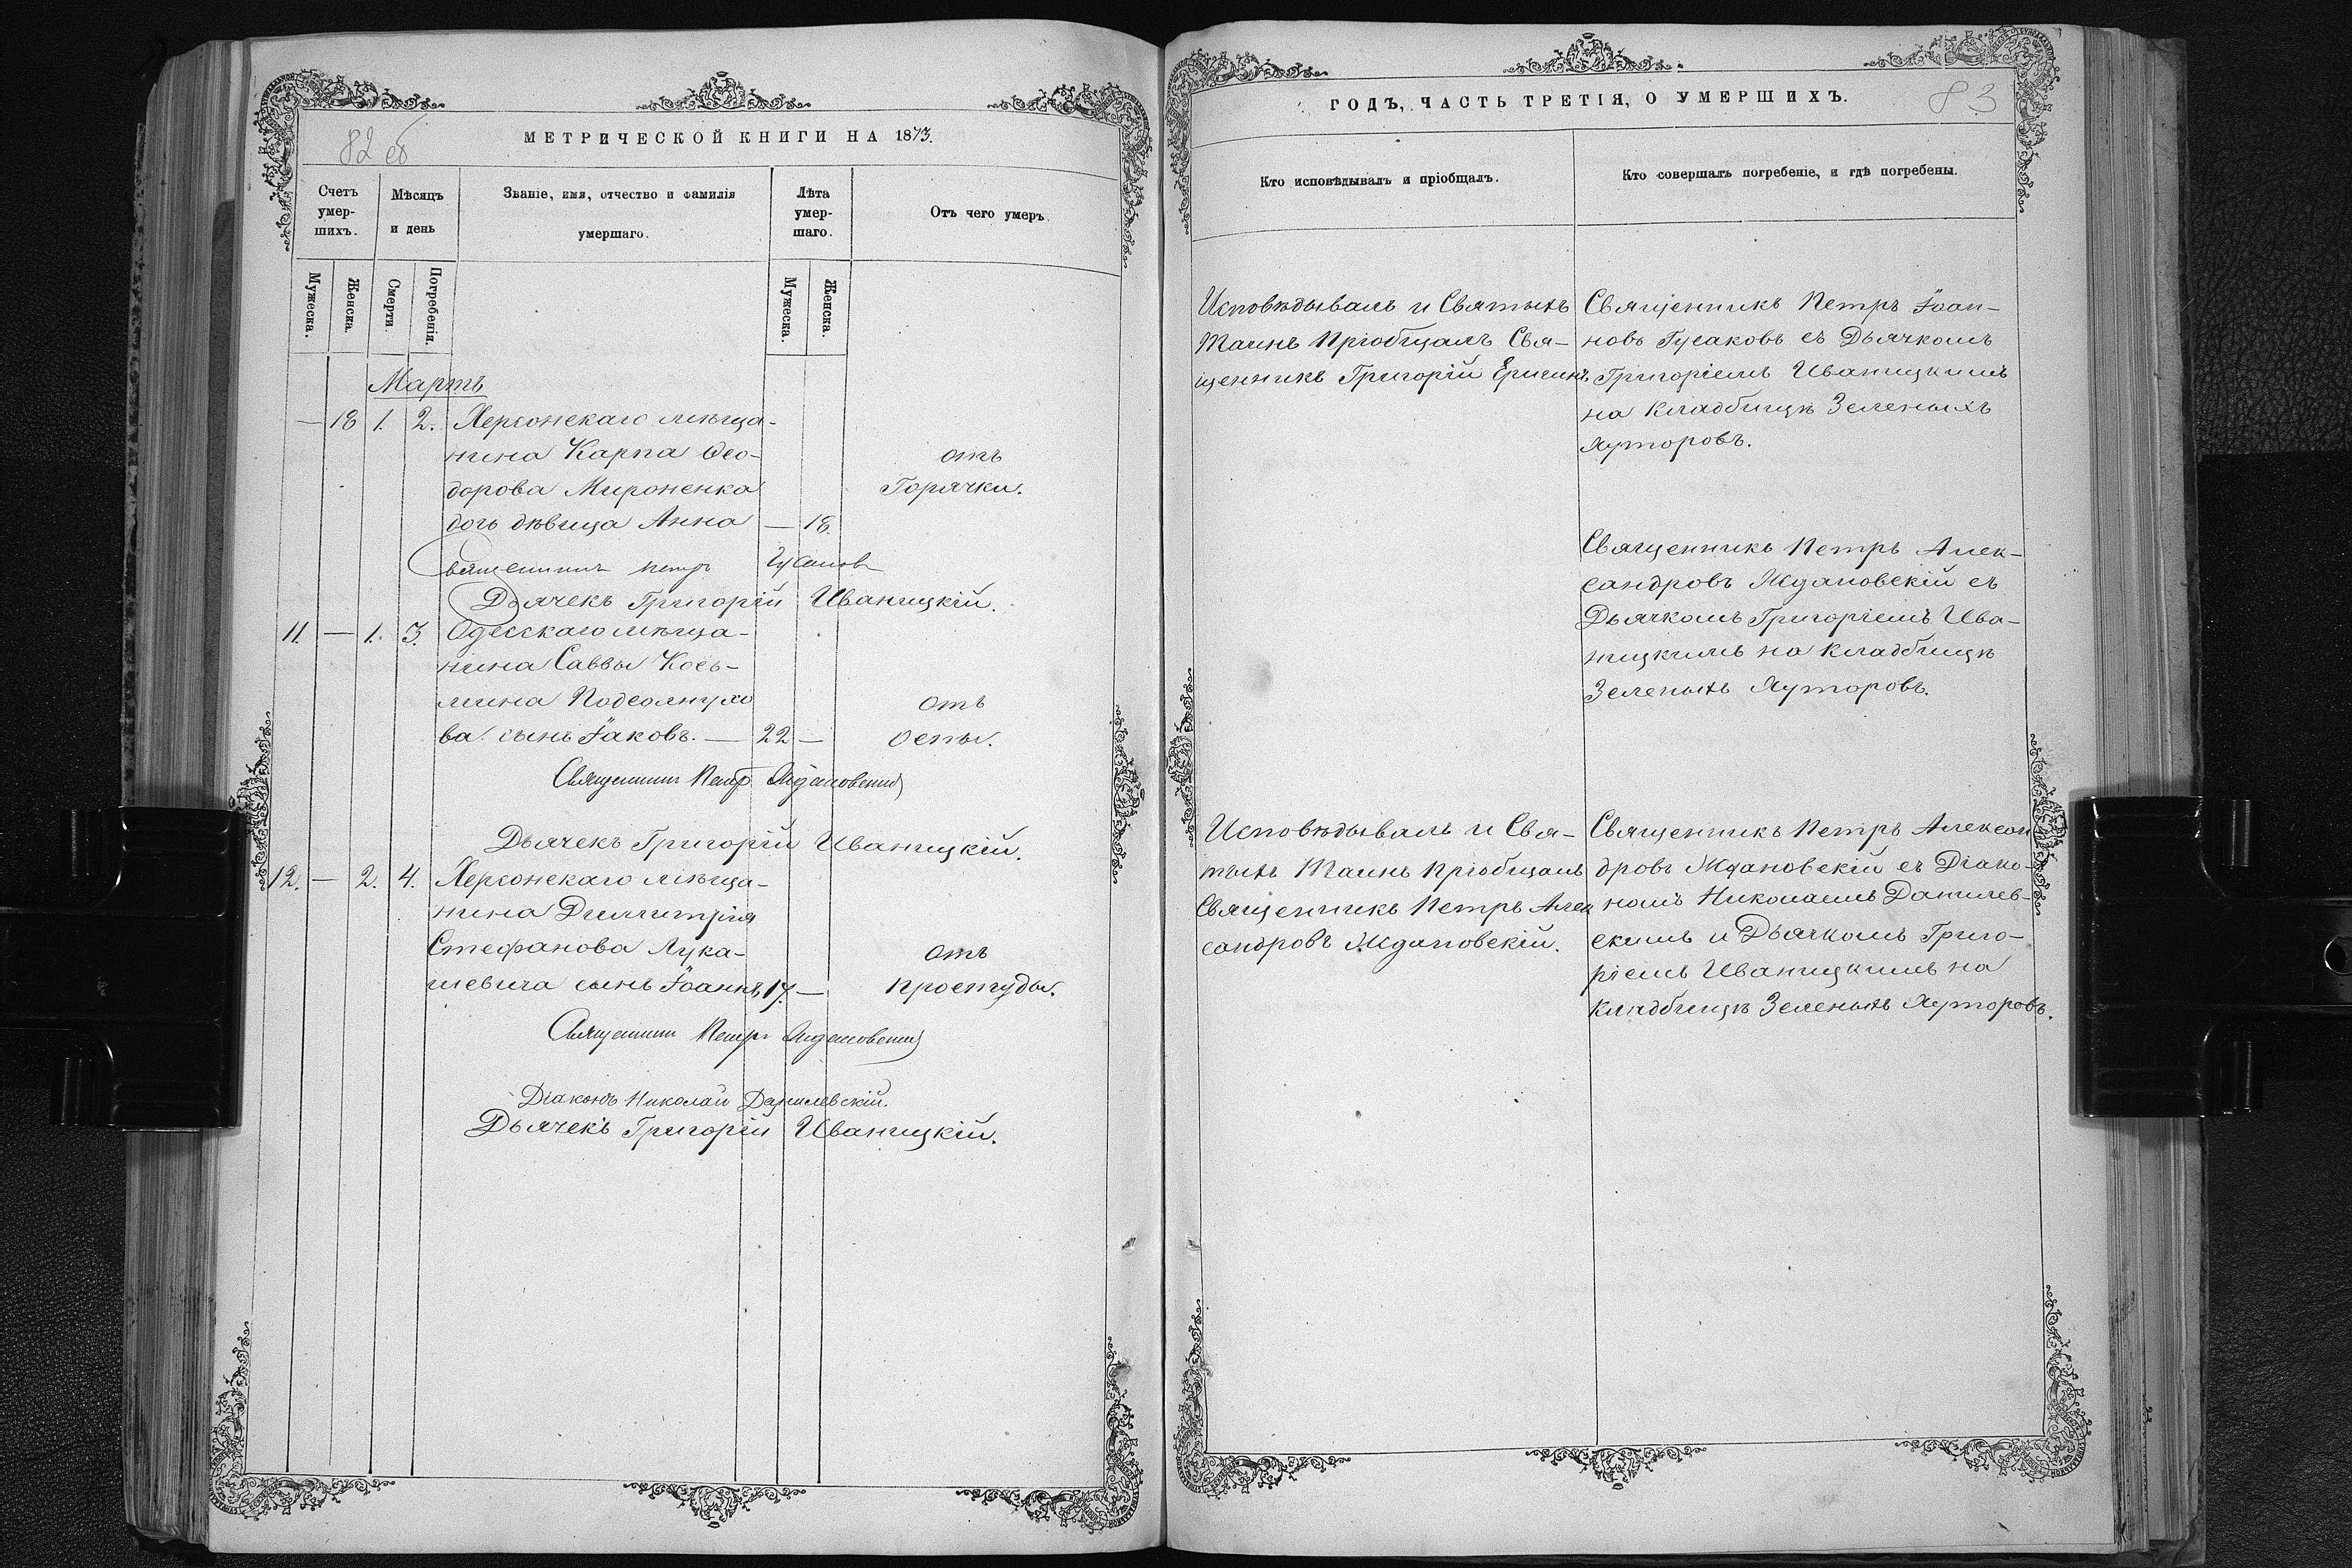 82 об
МЕТРИЧЕСКОЙ КНИГИ НА 1873.
Счетъ умер-шихъ.
Мѣсяцъ и день
Званіе, имя, отчество и фамилія умершаго.
Лѣта умер-шаго.
Отъ чего умеръ
Мужеска.
Женска.
Смерти.
Погребенія.
Мужеска.
Женска.
Мартъ
— 18 1. 2. Херсонскаго мѣща-
нина Карпа Ѳео- отъ
дорова Мироненка Горячки.
дочь дѣвица Анна — 18.
Священникъ Петръ Гусаковъ
Дьячекъ Григорій Иваницкій.
11. — 1. 3. Одесскаго мѣща-
нина Саввы Козь-
мина Подсолнухо отъ
ва сынъ Іаковъ. — 22 — Оспы.
Священникъ Петръ Ждановскій
Дьячекъ Григорій Иваницкій.
12. — 2. 4. Херсонскаго мѣща-
нина Димитрія
Стефанова Лука- отъ
шевича сынъ Іоаннъ 17. — простуды.
Священникъ Петръ Ждановскій
Діаконъ Николай Данилевскій.
Дьячекъ Григорій Иваницкій.
ГОДЪ, ЧАСТЬ ТРЕТІЯ, О УМЕРШИХЪ.
83
Кто исповѣдывалъ и пріобщалъ.
Кто совершалъ погребеніе, и гдѣ погребены.
Исповѣдывалъ и Святыхъ
Таинъ Пріобщалъ Свя-
щенникъ Григорій Еригинъ
Священникъ Петръ Іоан-
новъ Гусаковъ съ Дьячкомъ
Григоріемъ Иваницкимъ
на кладбищѣ Зеленыхъ
Хуторовъ.
Священникъ Петръ Алек-
сандровъ Ждановскій съ
Дьячкомъ Григоріемъ Ива-
ницкимъ на кладбищѣ
Зеленыхъ Хуторовъ.
Исповѣдывалъ и Свя-
тыхъ Таинъ пріобщалъ
Священникъ Петръ Алек
сандровъ Ждановскій.
Священникъ Петръ Алексан
дровъ Ждановскій съ Діако-
номъ Николаемъ Данилев-
скимъ и Дьячкомъ Григо-
ріемъ Иваницкимъ на
кладбищѣ Зеленыхъ Хуторовъ.